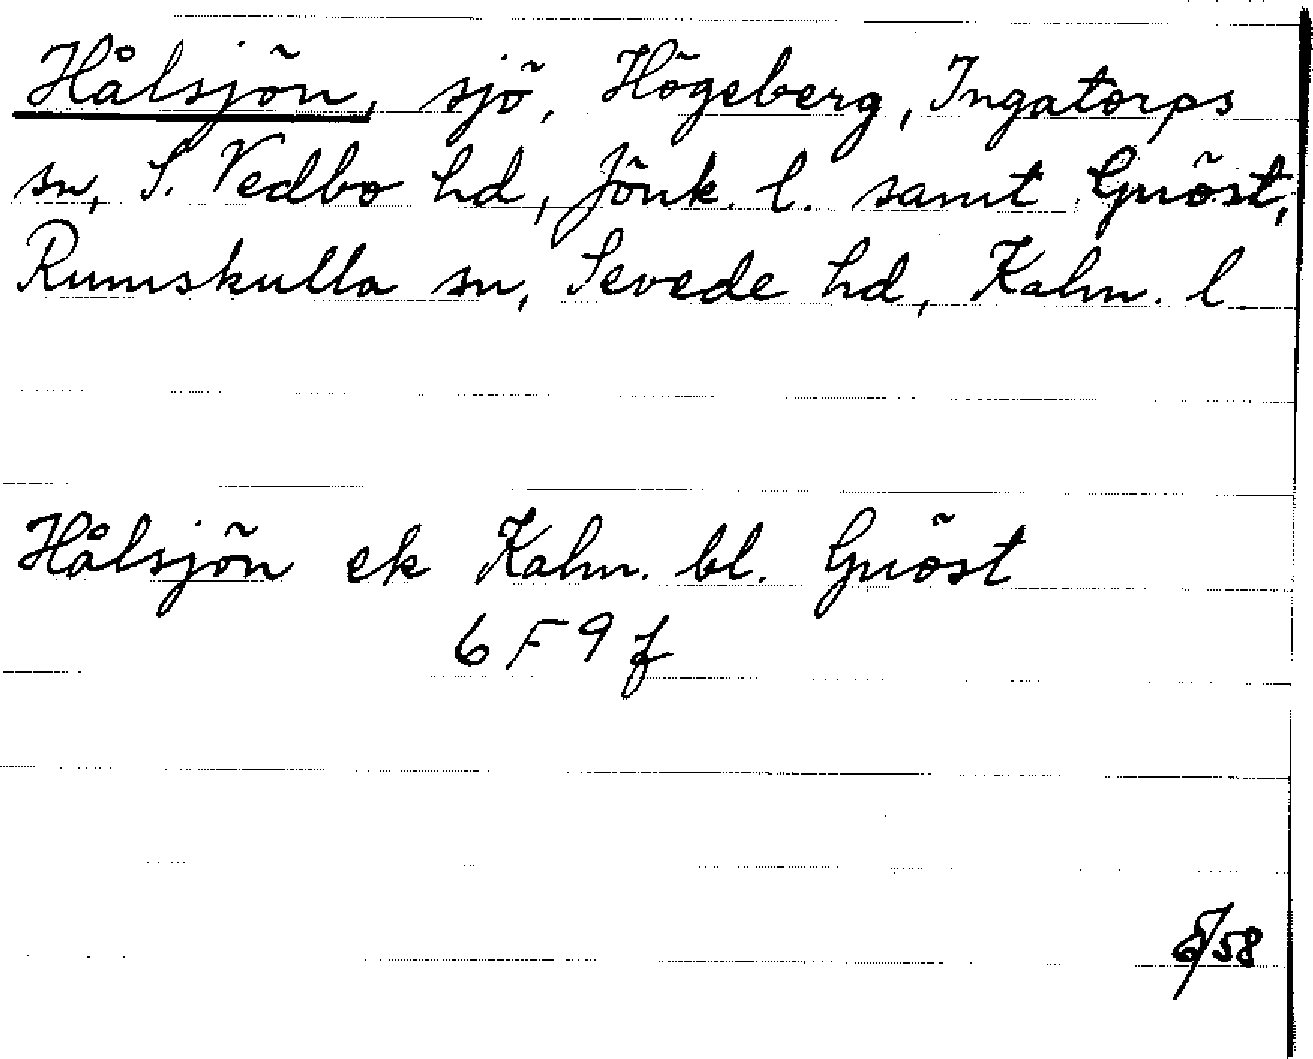 Hålsjön, sjö, Högeberg, Ingatorps
sn, S. Vedbo hd, Jönk. l. samt Gnöst,
Rumskulla sn, Sevede hd, Kalm. l
Hålsjön ek Kalm. bl. Gnöst
6 F 9 f
/58